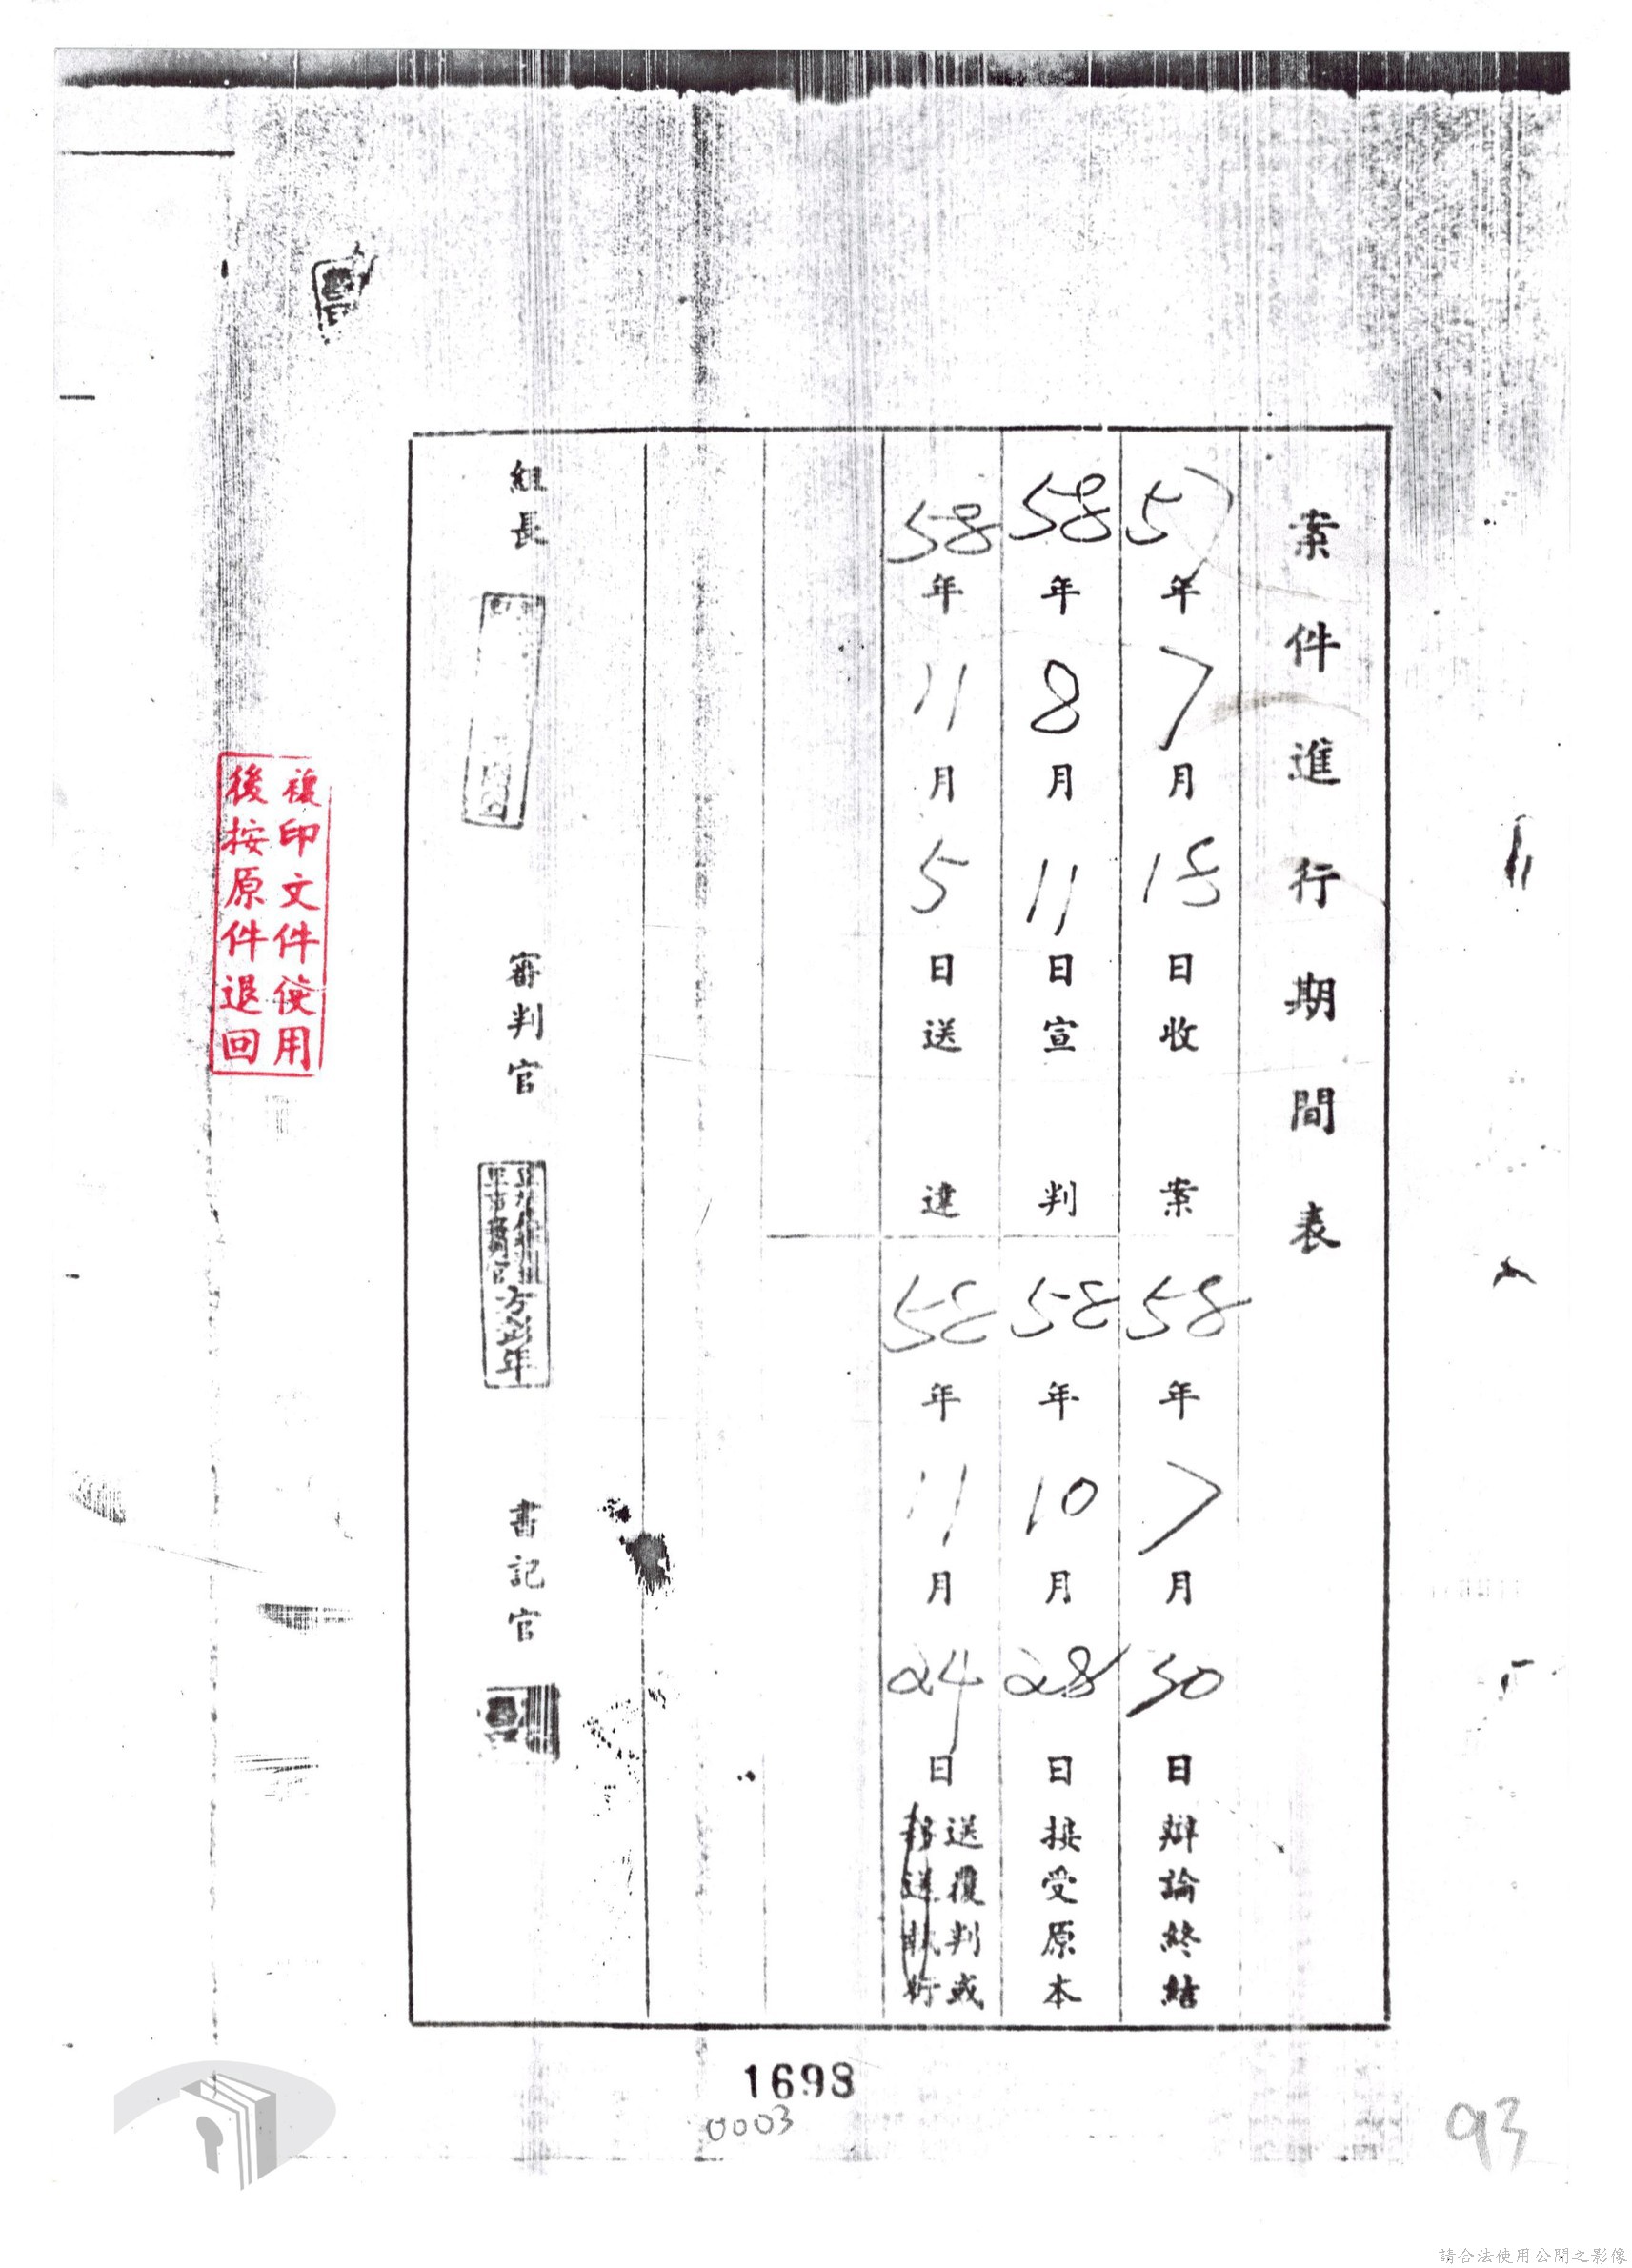 案件進行期間表
57年7月18日收案
58年7月30日辯論終結
58年8月11日宣判
58年10月28日接受原本
58年11月5日送達
58年11月24日送覆判或
移送執行
組長
審判官
方彭年
書記官
複印文件使用
後按原件退回
1698
0003
93
請合法使用公開之影像